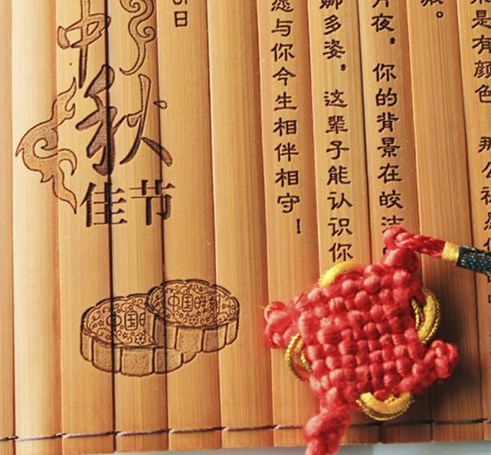 是有颜色
月夜，你的背景在皎洁
娜多姿，这辈子能认识你
愿与你今生相伴相守！
日
中秋
佳节
中国
中国